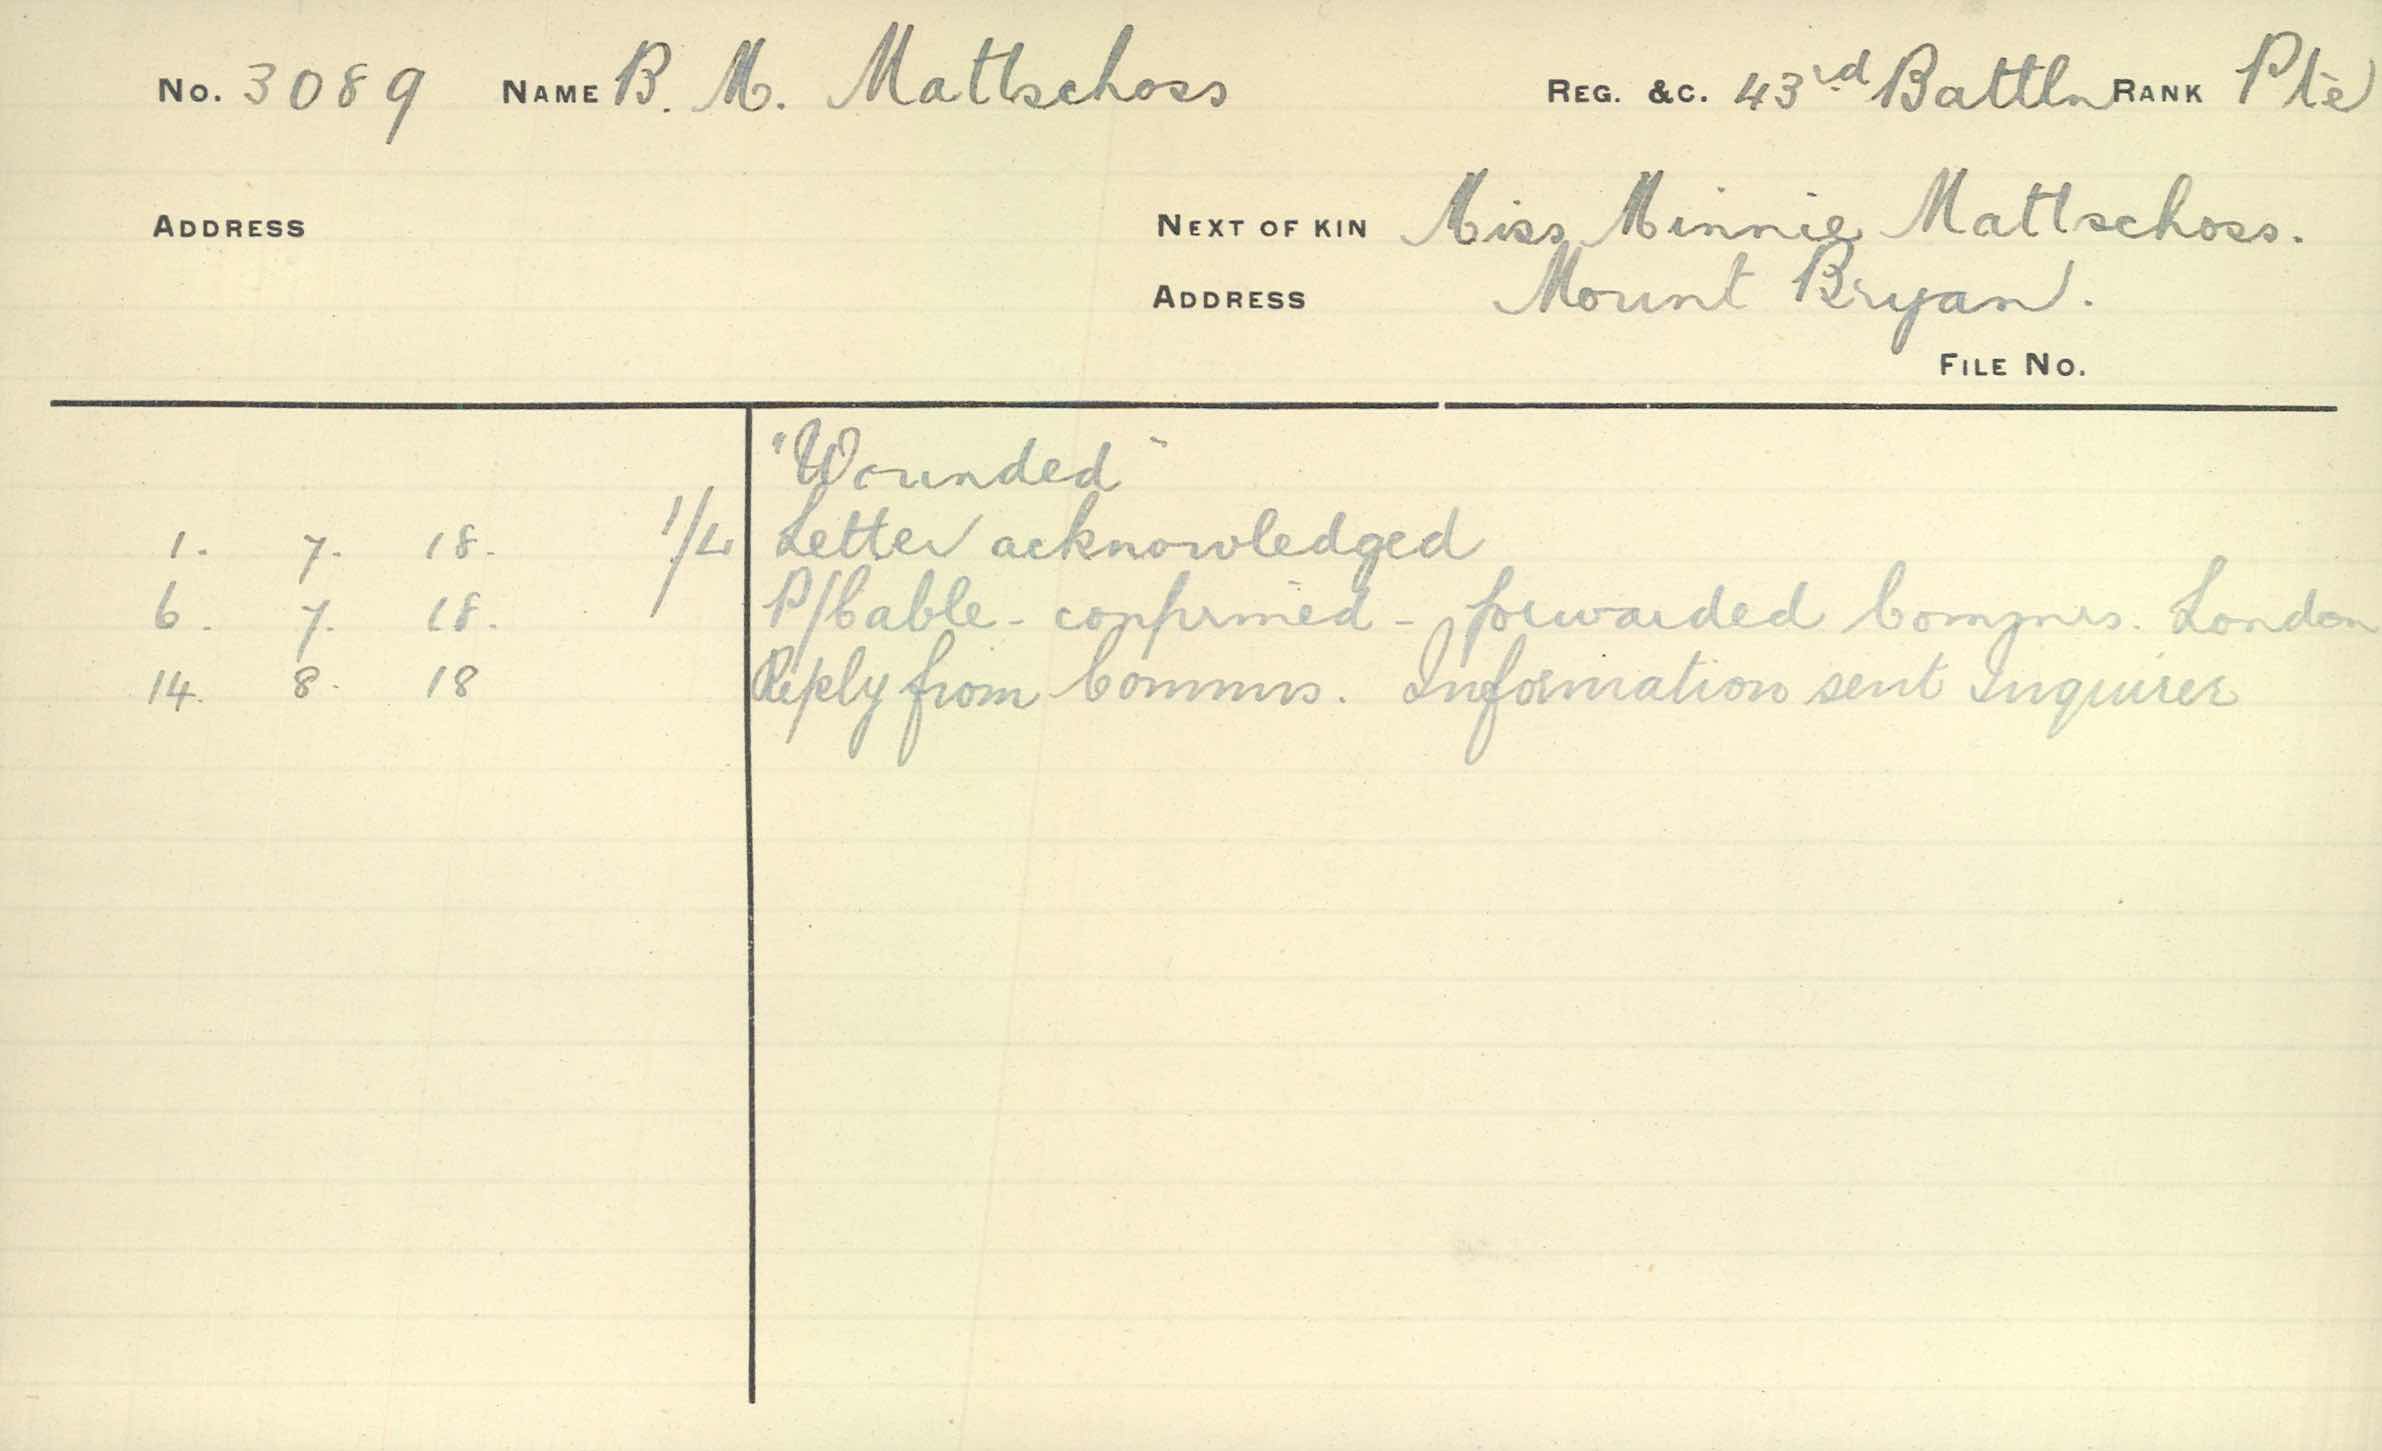 No. 3089 NAME B. M. Mattschoss REG. &C. 43rd Battln RANK Pte
ADDRESS NEXT OF KIN Miss Minnie Mattschoss.
ADDRESS Mount Bryan.
FILE No.
"Wounded"
1. 7. 18. 1/L Letter acknowledged
6. 7. 18. P/Cable - confirmed - forwarded Commrs. London
14. 8. 18 Reply from Commrs. Information sent Inquirer